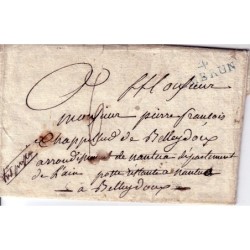 A Monsieur
monsieur pierre francois
chappellud de Belleydoux
arrondisement de nantua département
de l'ain poste restante a nantua
à Belleydoux